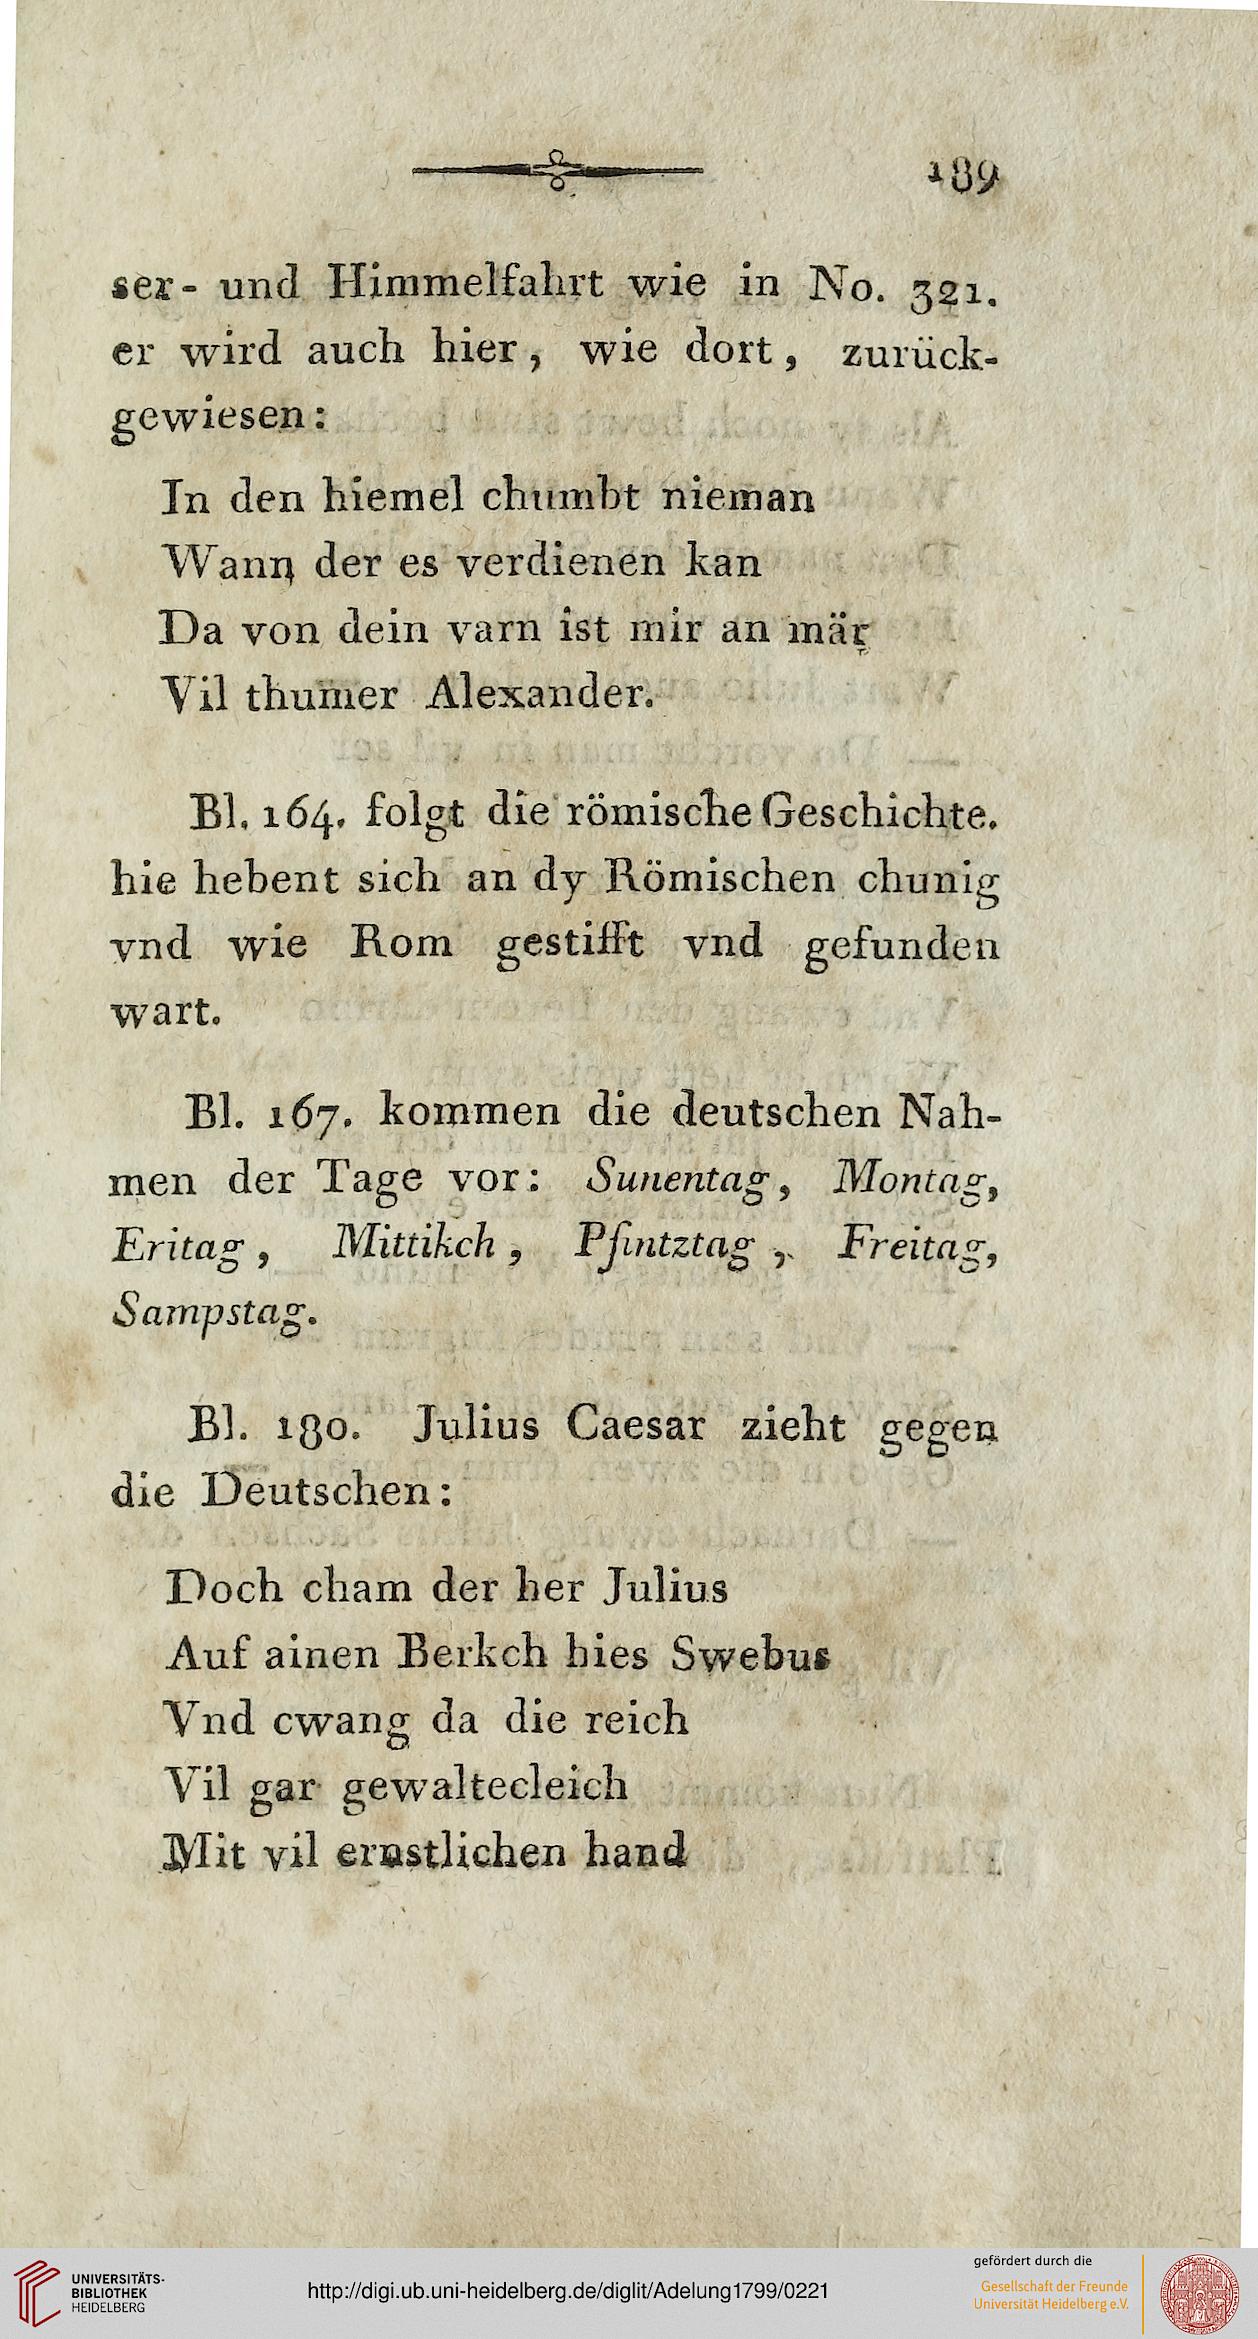 189
ser- und Himmelfahrt wie in No. 321.
er wird auch hier, wie dort, zurück-
gewiesen:
In den hiemel chumbt nieman
Wann der es verdienen kan
Da von dein varn ist mir an mär
Vil thumer Alexander.
Bl. 164. folgt die römische Geschichte.
hie hebent sich an dy Römischen chunig
vnd wie Rom gestifft vnd gefunden
wart.
Bl. 167. kommen die deutschen Nah-
men der Tage vor: Sunentag, Montag,
Eritag, Mittikch, Pfintztag, Freitag,
Sampstag.
Bl. 180. Julius Caesar zieht gegen
die Deutschen:
Doch cham der her Julius
Auf ainen Berkch hies Swebus
Vnd cwang da die reich
Vil gar gewaltecleich
Mit vil ernstlichen hand
UNIVERSITÄTS-
BIBLIOTHEK
HEIDELBERG
http://digi.ub.uni-heidelberg.de/diglit/Adelung1799/0221
gefördert durch die
Gesellschaft der Freunde
Universität Heidelberg e.V.